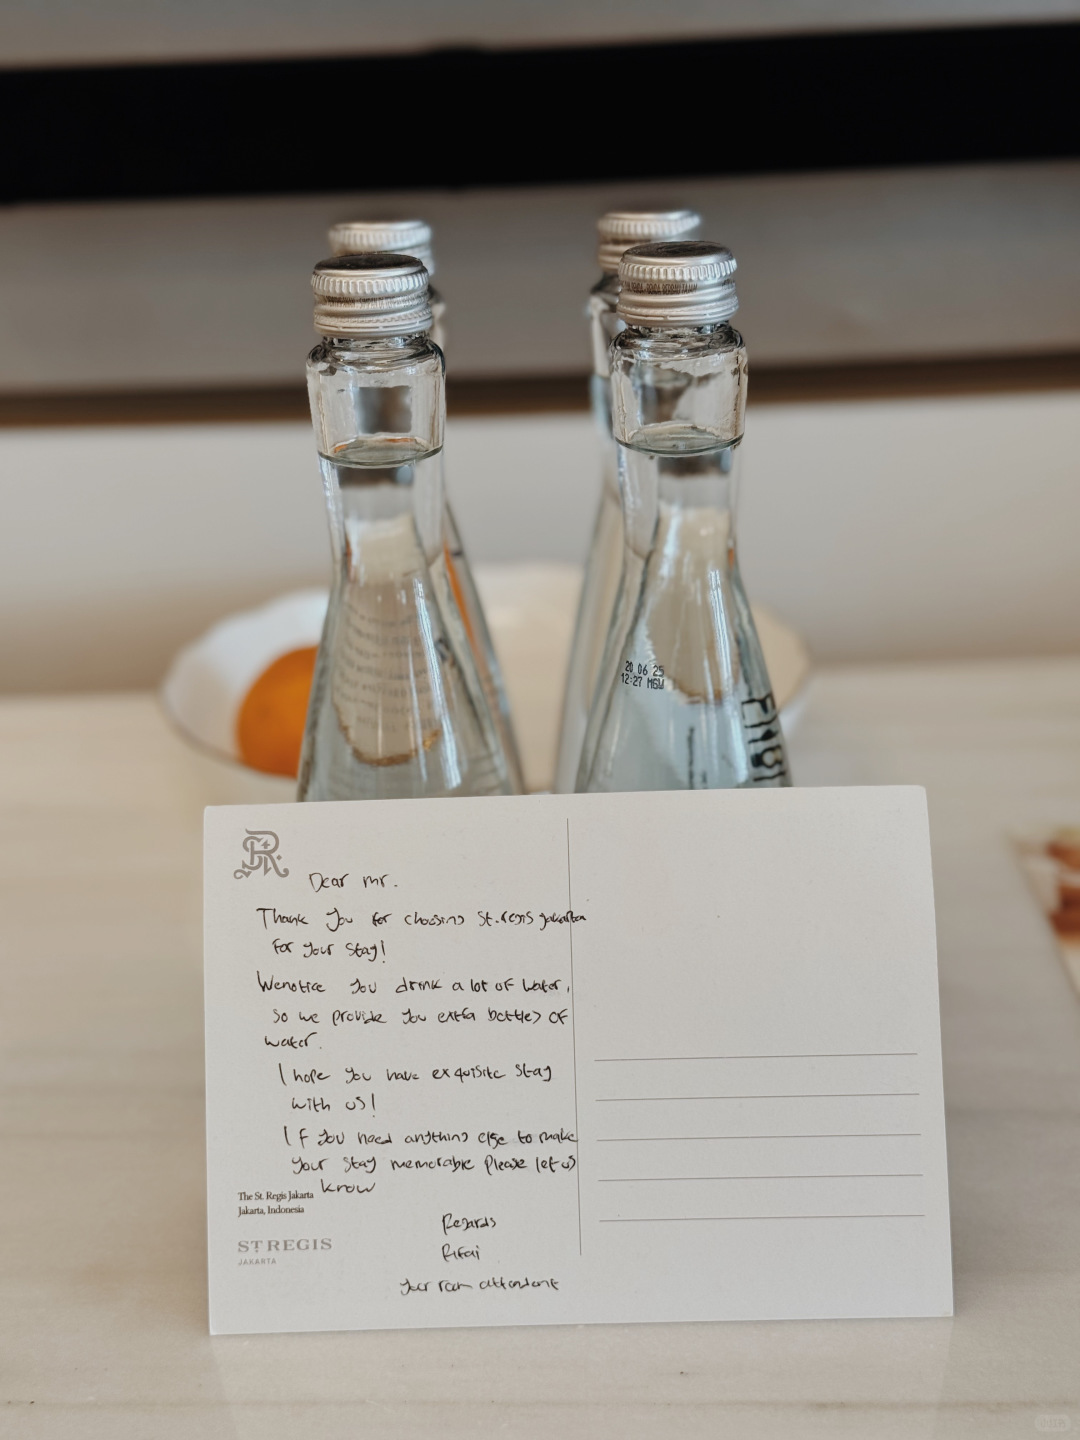 20 06 25
12:27 MGW
Dear mr.
Thank You for choosing St.regis jakarta
for your stay!
We notice you drink a lot of water,
so we provide you extra bottles of
water.
I hope you have exquisite stay
with us!
If you need anything else to make
your stay memorable please let us
know
The St. Regis Jakarta
Jakarta, Indonesia
ST REGIS
JAKARTA
Regards
Rifai
your room attendant